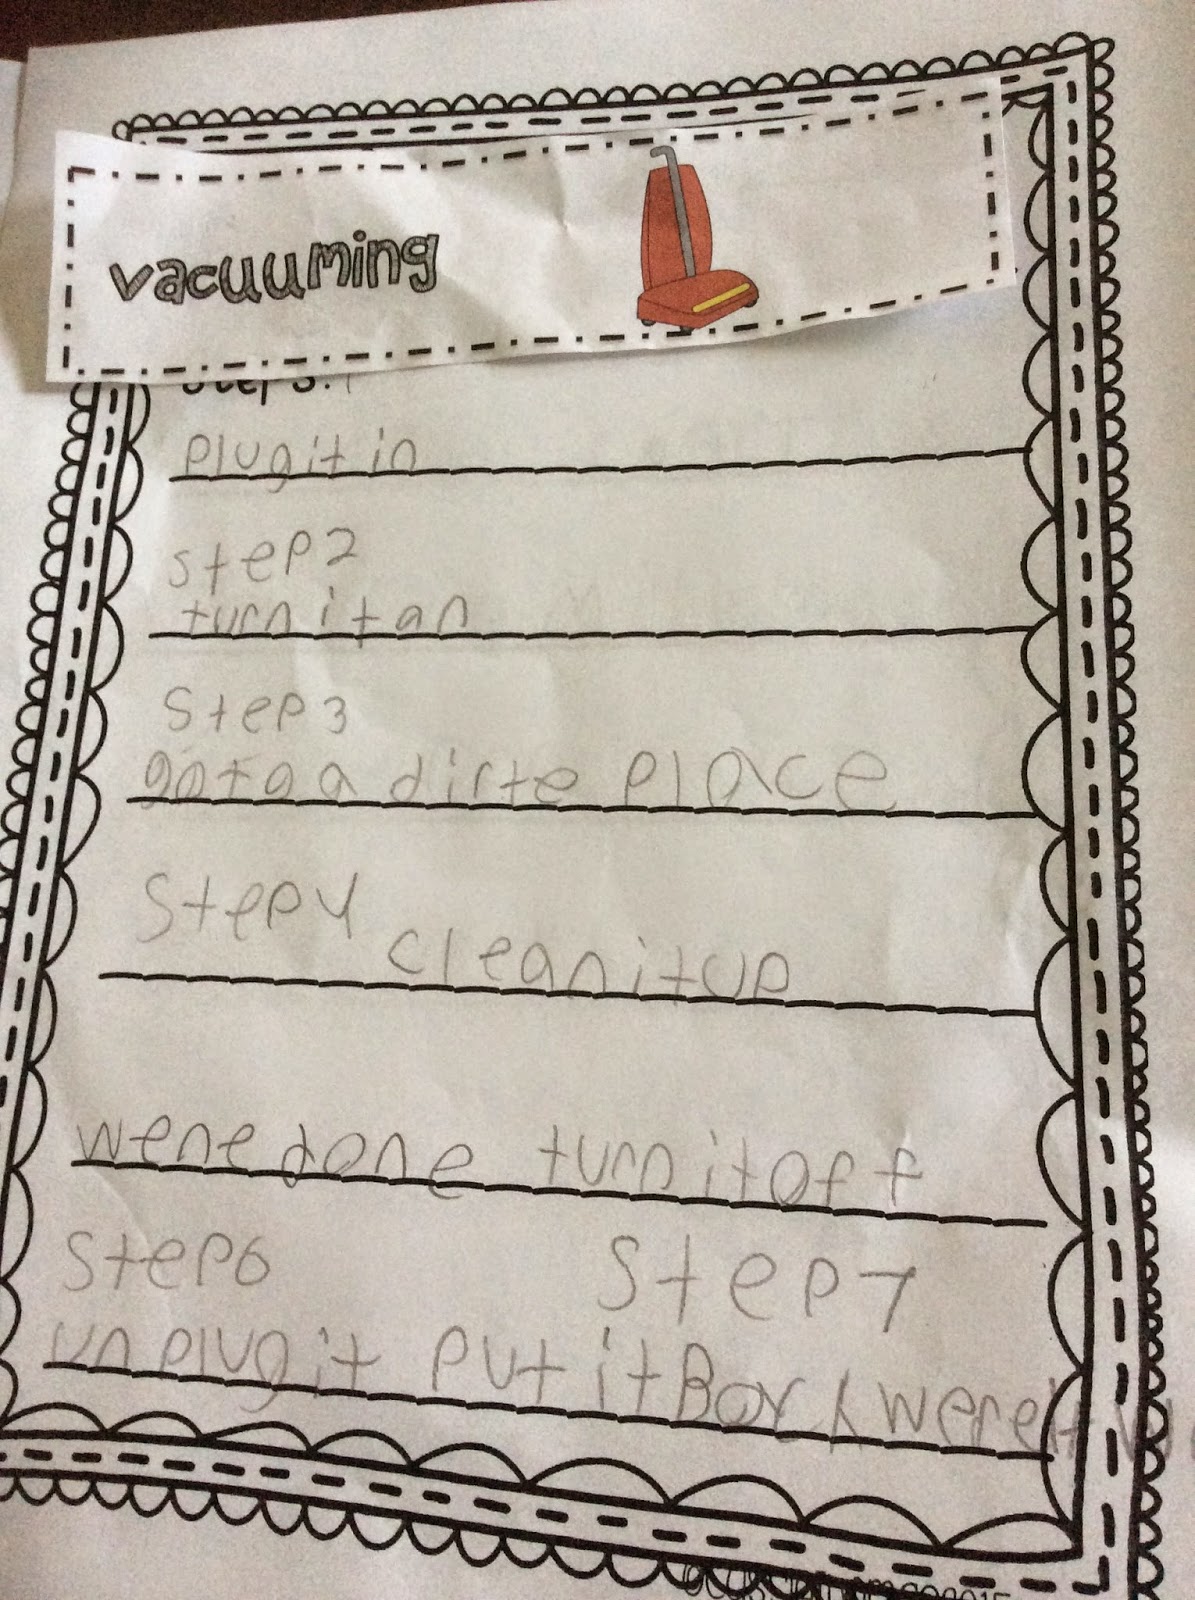 vacuuming
Steps: 1
plug it in
step 2
turn it an
Step 3
go to a dirte place
Step 4
clean it up
wene done turn it off
Step 6 Step 7
unplug it put it Back were it w